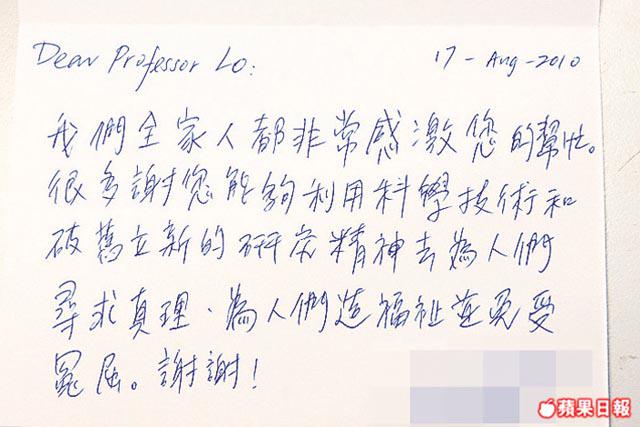 Dear Professor Lo:
17-Aug-2010
我們全家人都非常感激您的幫忙。
很多謝您能夠利用科學技術和
破舊立新的研究精神去為人們
尋求真理、為人們造福祉並免受
冤屈。謝謝!
蘋果日報